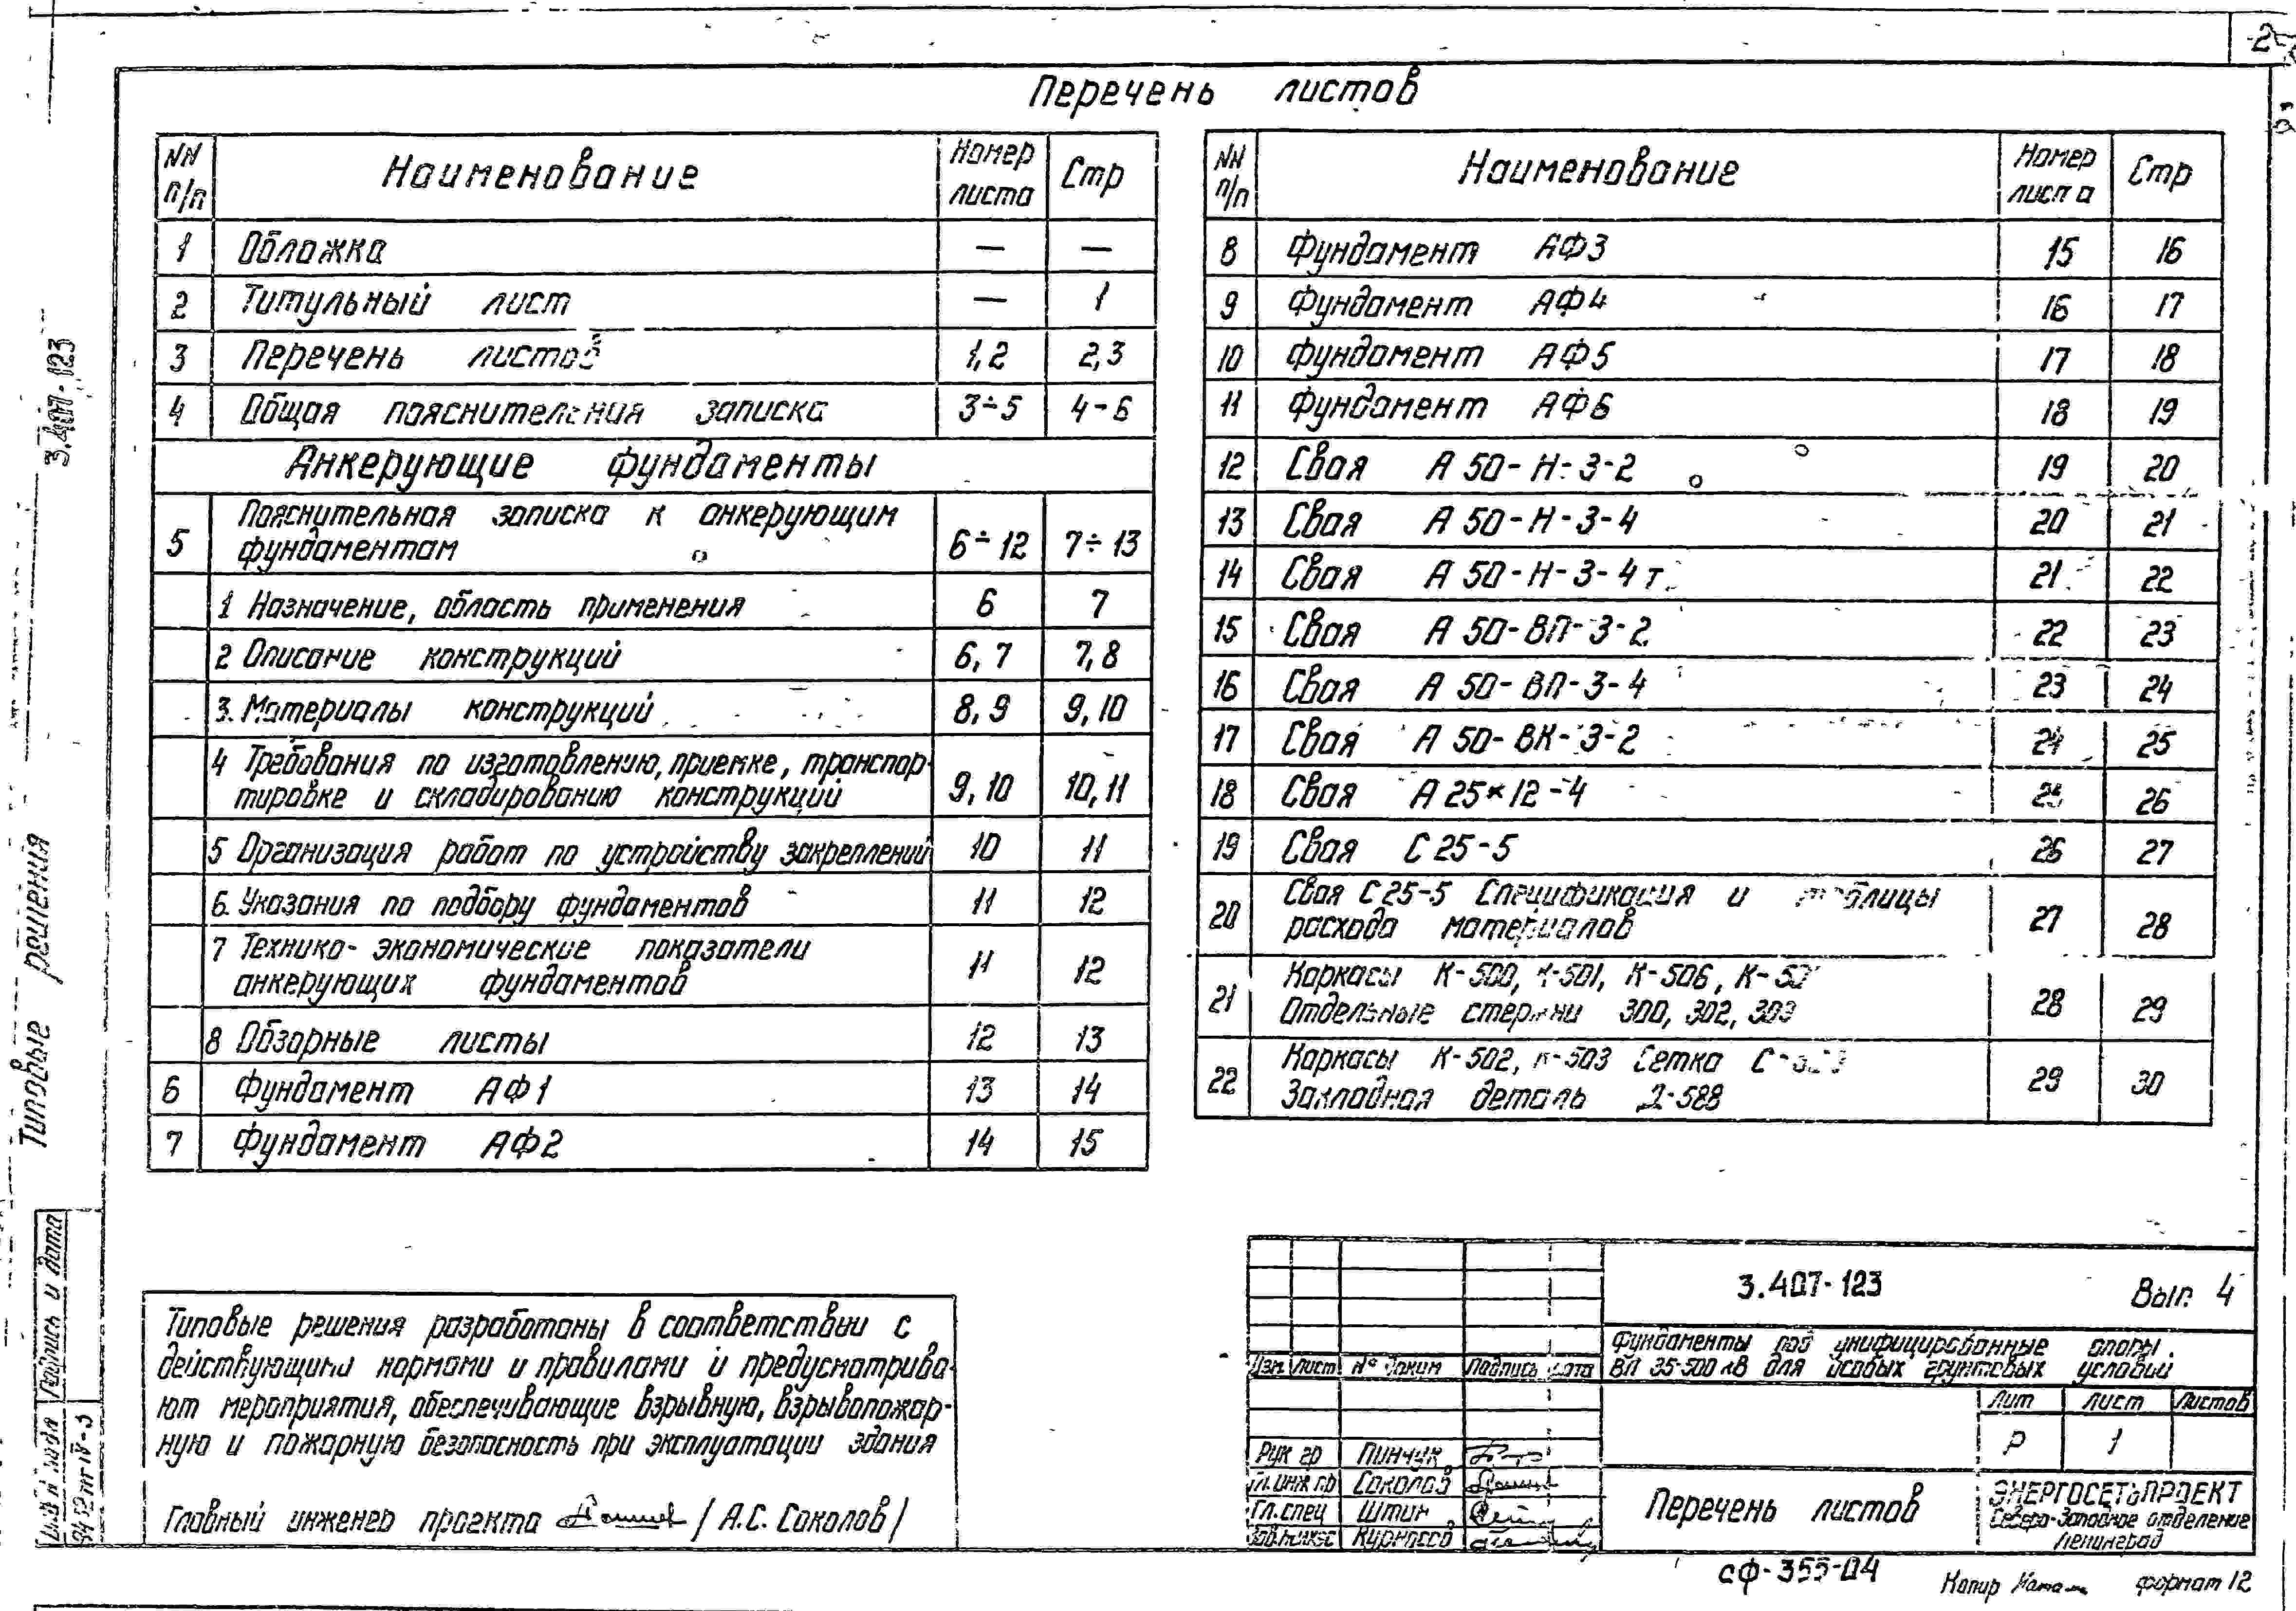 2
Перечень листов
NN п/п Наименование Номер листа Стр
1 Обложка — —
2 Титульный лист — 1
3 Перечень листов 1,2 2,3
4 Общая пояснительная записка 3÷5 4-6
Анкерующие фундаменты
5 Пояснительная записка к анкерующим
фундаментам 6÷12 7÷13
1 Назначение, область применения 6 7
2 Описание конструкций 6,7 7,8
3. Материалы конструкций 8,9 9,10
4 Требования по изготовлению, приемке, транспор-
тировке и складированию конструкций 9,10 10,11
5 Организация работ по устройству закреплений 10 11
6. Указания по подбору фундаментов 11 12
7 Технико-экономические показатели
анкерующих фундаментов 11 12
8 Обзорные листы 12 13
6 Фундамент АФ1 13 14
7 Фундамент АФ2 14 15
NN п/п Наименование Номер листа Стр
8 Фундамент АФ3 15 16
9 Фундамент АФ4 16 17
10 Фундамент АФ5 17 18
11 Фундамент АФ6 18 19
12 Свая А 50-Н-3-2 19 20
13 Свая А 50-Н-3-4 20 21
14 Свая А 50-Н-3-4т 21 22
15 Свая А 50-ВП-3-2 22 23
16 Свая А 50-ВП-3-4 23 24
17 Свая А 50-ВК-3-2 24 25
18 Свая А 25×12-4 25 26
19 Свая С 25-5 26 27
20 Свая С 25-5 Спецификация и таблицы
расхода материалов 27 28
21 Каркасы К-500, К-501, К-506,
Отдельные стержни 300, 302, 303 28 29
22 Каркасы К-502, К-503 Сетка
Закладная деталь Д-588 29 30
Типовые решения разработаны в соответствии с
действующими нормами и правилами и предусматрива-
ют мероприятия, обеспечивающие взрывную, взрывопожар-
ную и пожарную безопасность при эксплуатации здания
Главный инженер проекта /А.С. Соколов/
3.407-123 Вып. 4
Фундаменты под унифицированные опоры
ВЛ 35-500 кВ для особых грунтовых условий
Изм. Лист № докум Подпись Дата
Лит Лист Листов
Р 1
Рук гр Пинчук
Гл. инж пр Соколов
Гл. спец Штин
Курносов
Перечень листов
ЭНЕРГОСЕТЬПРОЕКТ
Северо-Западное отделение
Ленинград
сф-355-04
Копир формат 12
Типовые решения 3.407-123
Подпись и дата
Инв № подл